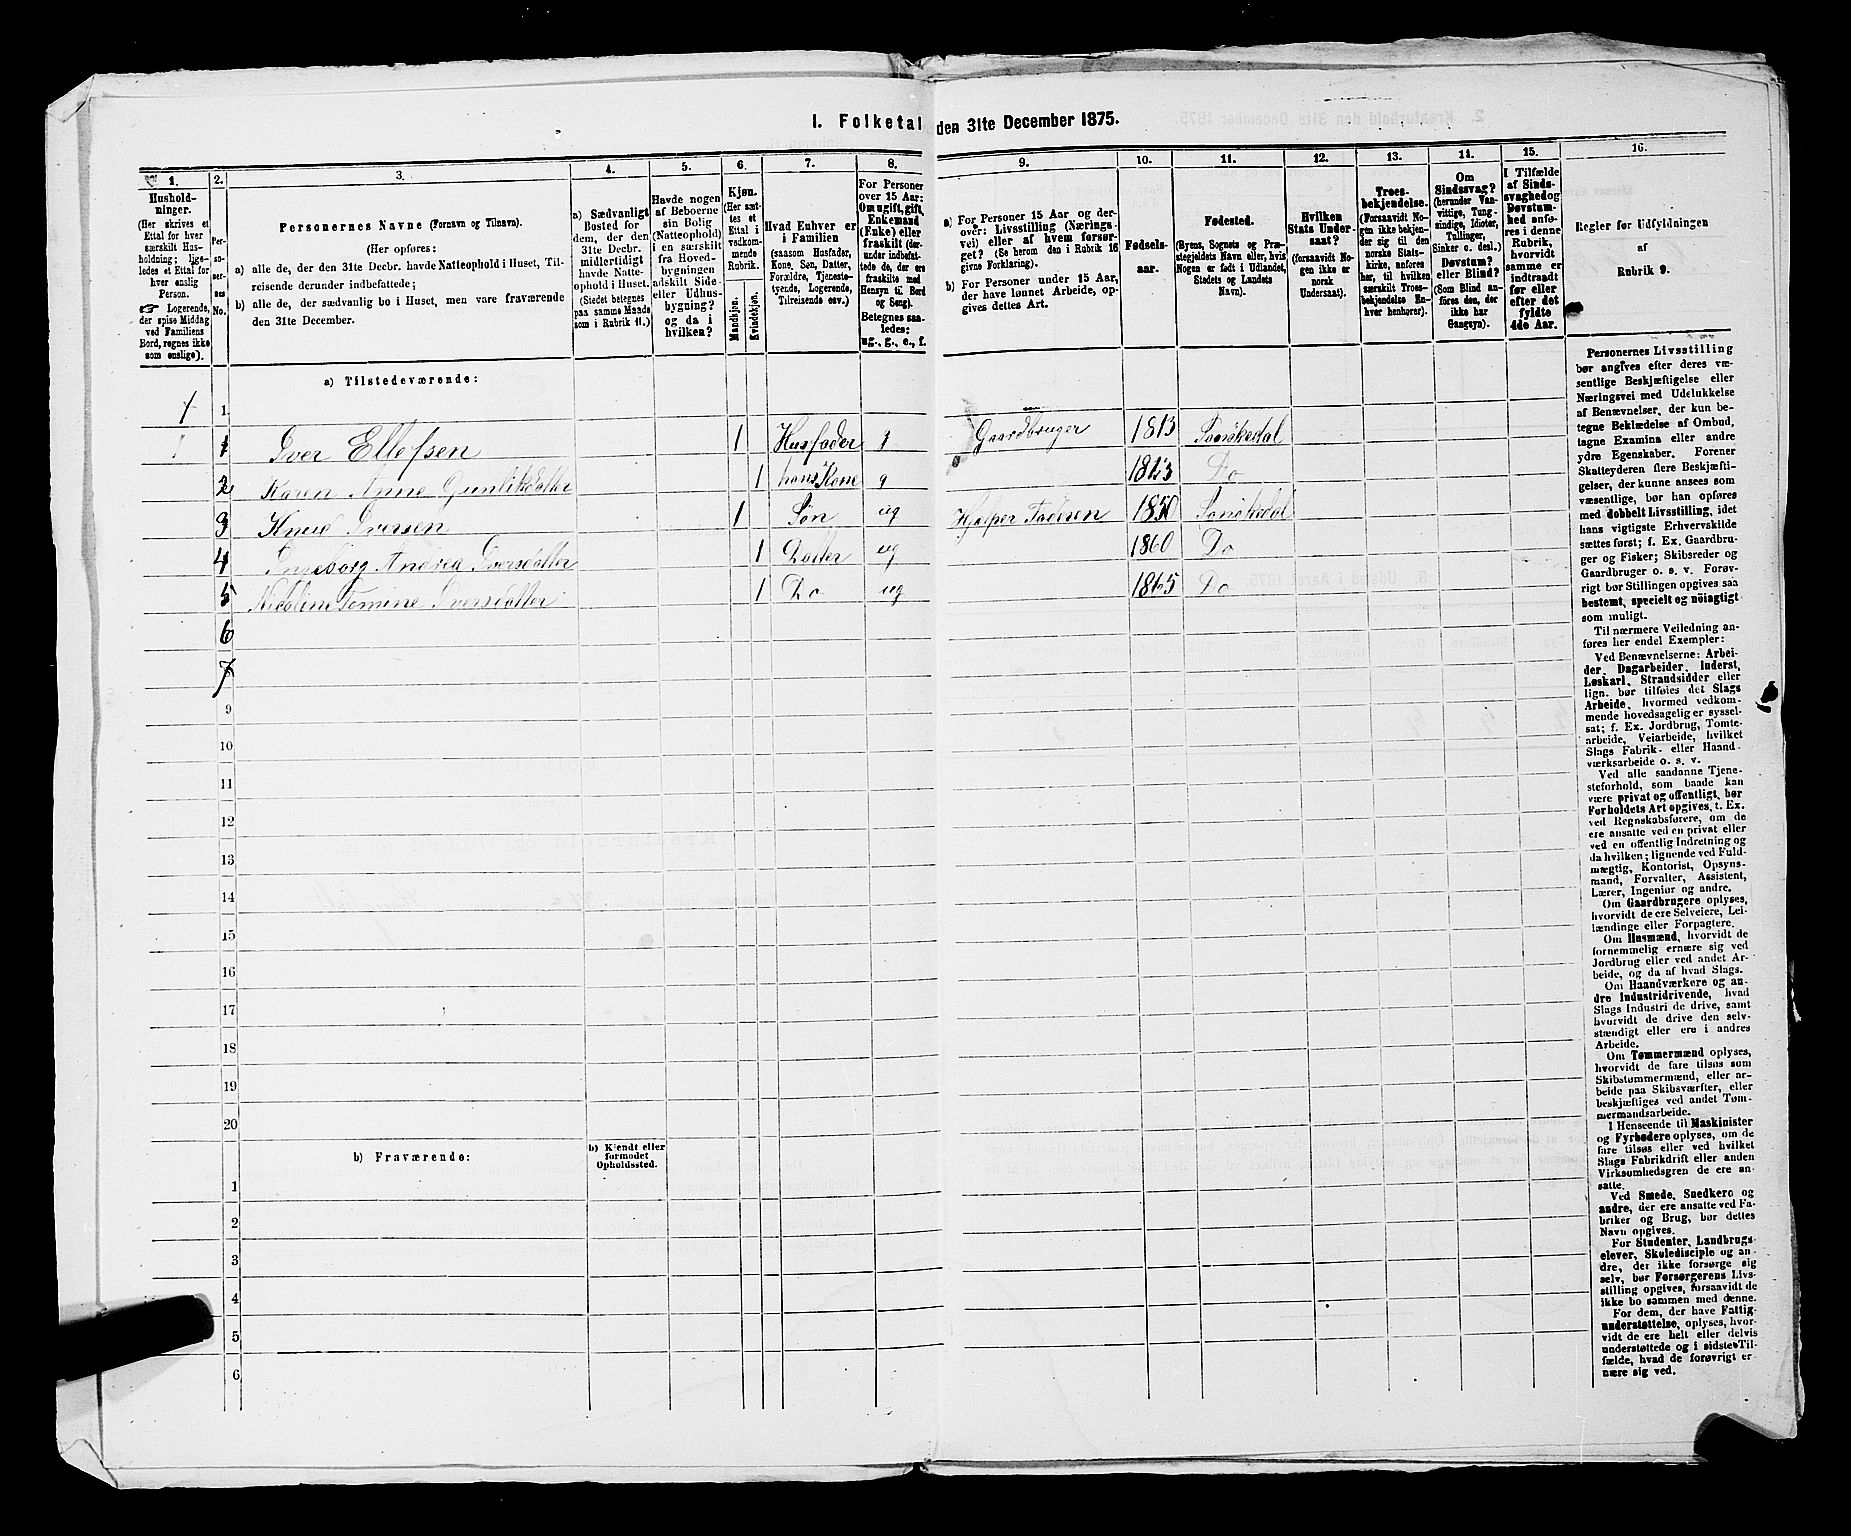 I. Folketal den 31te December 1875.
1.
2.
3.
4.
5.
6.
7.
8.
9.
10.
11.
12.
13.
14.
15.
16.
Hushold-
ninger.
(Her skrives et
Ettal for hver
særskilt Hus-
holdning; lige-
ledes et Ettal for
hver enslig
Person.
☞ Logerende,
der spise Middag
ved Familiens
Bord, regnes ikke
som enslige).
Per-
so-
ner-
nes
No.
Personernes Navne (Fornavn og Tilnavn).
(Her opføres:
a) alle de, der den 31te Decbr. havde Natteophold i Huset, Til-
reisende derunder indbefattede;
b) alle de, der sædvanlig bo i Huset, men vare fraværende
den 31te December.
a) Sædvanligt
Bosted for
dem, der den
31te Decbr.
midlertidigt
havde Natte-
ophold i Huset.
(Stedet betegnes
paa samme Maade
som i Rubrik 11.)
Havde nogen
af Beboerne
sin Bolig
(Natteophold)
i en særskilt
fra Hoved-
bygningen
adskilt Side-
eller Udhus-
bygning?
og da i
hvilken?
Kjøn.
(Her sæt-
tes et
Ettal i
vedkom-
mende
Rubrik.
Mandkjøn.
Kvindekjøn.
Hvad Enhver er
i Familien
(saasom Husfader,
Kone, Søn, Datter,
Forældre, Tjeneste-
tyende, Logerende,
Tilreisende osv.)
For Personer
over 15 Aar:
Om ugift, gift,
Enkemand
(Enke) eller
fraskilt (der-
under indbefat-
tede de, der ere
fraskilte med
Hensyn til Bord
og Seng).
Betegnes saa-
ledes:
ug., g., e., f.
a) For Personer 15 Aar og der-
over: Livsstilling (Nærings-
vei) eller af hvem forsør-
get? (Se herom den i Rubrik 16
givne Forklaring).
b) For Personer under 15 Aar,
der have lønnet Arbeide, op-
gives dettes Art.
Fødsels-
aar.
Fødested.
(Byens, Sognets og Præ-
stegjeldets Navn eller, hvis
Nogen er født i Udlandet,
Stedets og Landets
Navn).
Hvilken
Stats Under-
saat?
(forsaavidt No-
gen ikke er
norsk
Undersaat).
Troes-
bekjendelse.
(Forsaavidt No-
gen ikke bekjen-
der sig til den
norske Stats-
kirke, anføres
her, til hvilken
særskilt Troes-
bekjendelse En-
hver henhører).
Om
Sindssvag?
(herunder Van-
vittige, Tung-
sindige, Idioter,
Tullinger,
Sinker o. desl.)
Døvstum?
eller Blind?
(Som Blind an-
føres den, der
ikke har
Gangsyn).
I Tilfælde
af Sinds-
svaghed og
Døvstum-
hed anfø-
res i denne
Rubrik,
hvorvidt
samme er
indtraadt
før eller
efter det
fyldte
4de Aar.
Regler før Udfyldningen
af
Rubrik 9.
a) Tilstedeværende:
1
1.
1 Iver Ellefsen 1 Husfader g Gaardbruger 1813 Sanøkedal
2 Karen Anne Gunlikdatter 1 hans Kone g 1823 Do
3 Knud Iversen 1 Søn ug Hjelper Faderen 1850 Sanøkedal
4 Ingeborg Andrea Iversdatter 1 Datter ug 1860 Do
5 Nicoline Tomine Iversdatter 1 Do ug 1865 Do
6
7
9
10
11
12
13
14
15
16
17
18
19
20
b) Fraværende:
b) Kjendt eller
formodet
Opholdssted.
1
2
3
4
5
6
Personernes Livsstilling
bør angives efter deres væ-
sentlige Beskjæftigelse eller
Næringsvei med Udelukkelse
af Benævnelser, der kun be-
tegne Beklædelse af Ombud,
tagne Examina eller andre
ydre Egenskaber. Forener
Skatteyderen flere Beskjæfti-
gelser, der kunne ansees som
væsentlige, bør han opføres
med dobbelt Livsstilling, idet
hans vigtigste Erhvervskilde
sættes først; f. Ex. Gaardbru-
ger og Fisker; Skibsreder og
Gaardbruger o. s. v. Forøv-
rigt bør Stillingen opgives saa
bestemt, specielt og nöiagtigt
som muligt.
Til nærmere Veiledning an-
føres her endel Exempler:
Ved Benævnelserne: Arbei-
der, Dagarbeider, Inderst,
Løskarl, Strandsidder eller
lign. bør tilføies det Slags
Arbeide, hvormed vedkom-
mende hovedsagelig er syssel-
sat; f. Ex. Jordbrug, Tomte-
arbeide, Veiarbeide, hvilket
Slags Fabrik- eller Haand-
værksarbeide o. s. v.
Ved alle saadanne Tjene-
steforhold, som baade kan
være privat og offentligt, bør
Forholdets Art opgives, t. Ex.
ved Regnskabsførere, om de
ere ansatte ved en privat eller
ved en offentlig Indretning og
da hvilken; lignende ved Fuld-
mægtig, Kontorist, Opsyns-
mand, Forvalter, Assistent,
Lærer, Ingeniør og andre.
Om Gaardbrugere oplyses,
hvorvidt de ere Selveiere, Lei-
lændinge eller Forpagtere.
Om Husmænd, hvorvidt de
fornemmelig ernære sig ved
Jordbrug eller ved andet Ar-
beide, og da af hvad Slags.
Om Haandværkere og an-
dre Industridrivende, hvad
Slags Industri de drive, samt
hvorvidt de drive den selv-
stændigt eller ere i andres
Arbeide.
Om Tømmermænd oplyses,
hvorvidt de fare tilsøs som
Skibstømmermænd, eller ar-
beide paa Skibsværfter, eller
beskjæftiges ved andet Tøm-
mermandsarbeide.
I Henseende til Maskinister
og Fyrbødere oplyses, om de
fare tilsøs eller ved hvilket
Slags Fabrikdrift eller anden
Virksomhedsgren de ere an-
satte.
Ved Smede, Snedkere og
andre, der ere ansatte ved Fa-
briker og Brug, bør dettes
Navn opgives.
For Studenter, Landbrugs-
elever, Skoledisciple og an-
dre, der ikke forsørge sig
selv, bør Forsørgerens Livs-
stilling opgives, forsaavidt de
ikke bo sammen med denne.
For dem, der have Fattig-
understøttelse, oplyses, hvor-
vidt de ere helt eller delvis
understøttede og i sidste Til-
fælde, hvad de forøvrigt er-
nære sig ved.